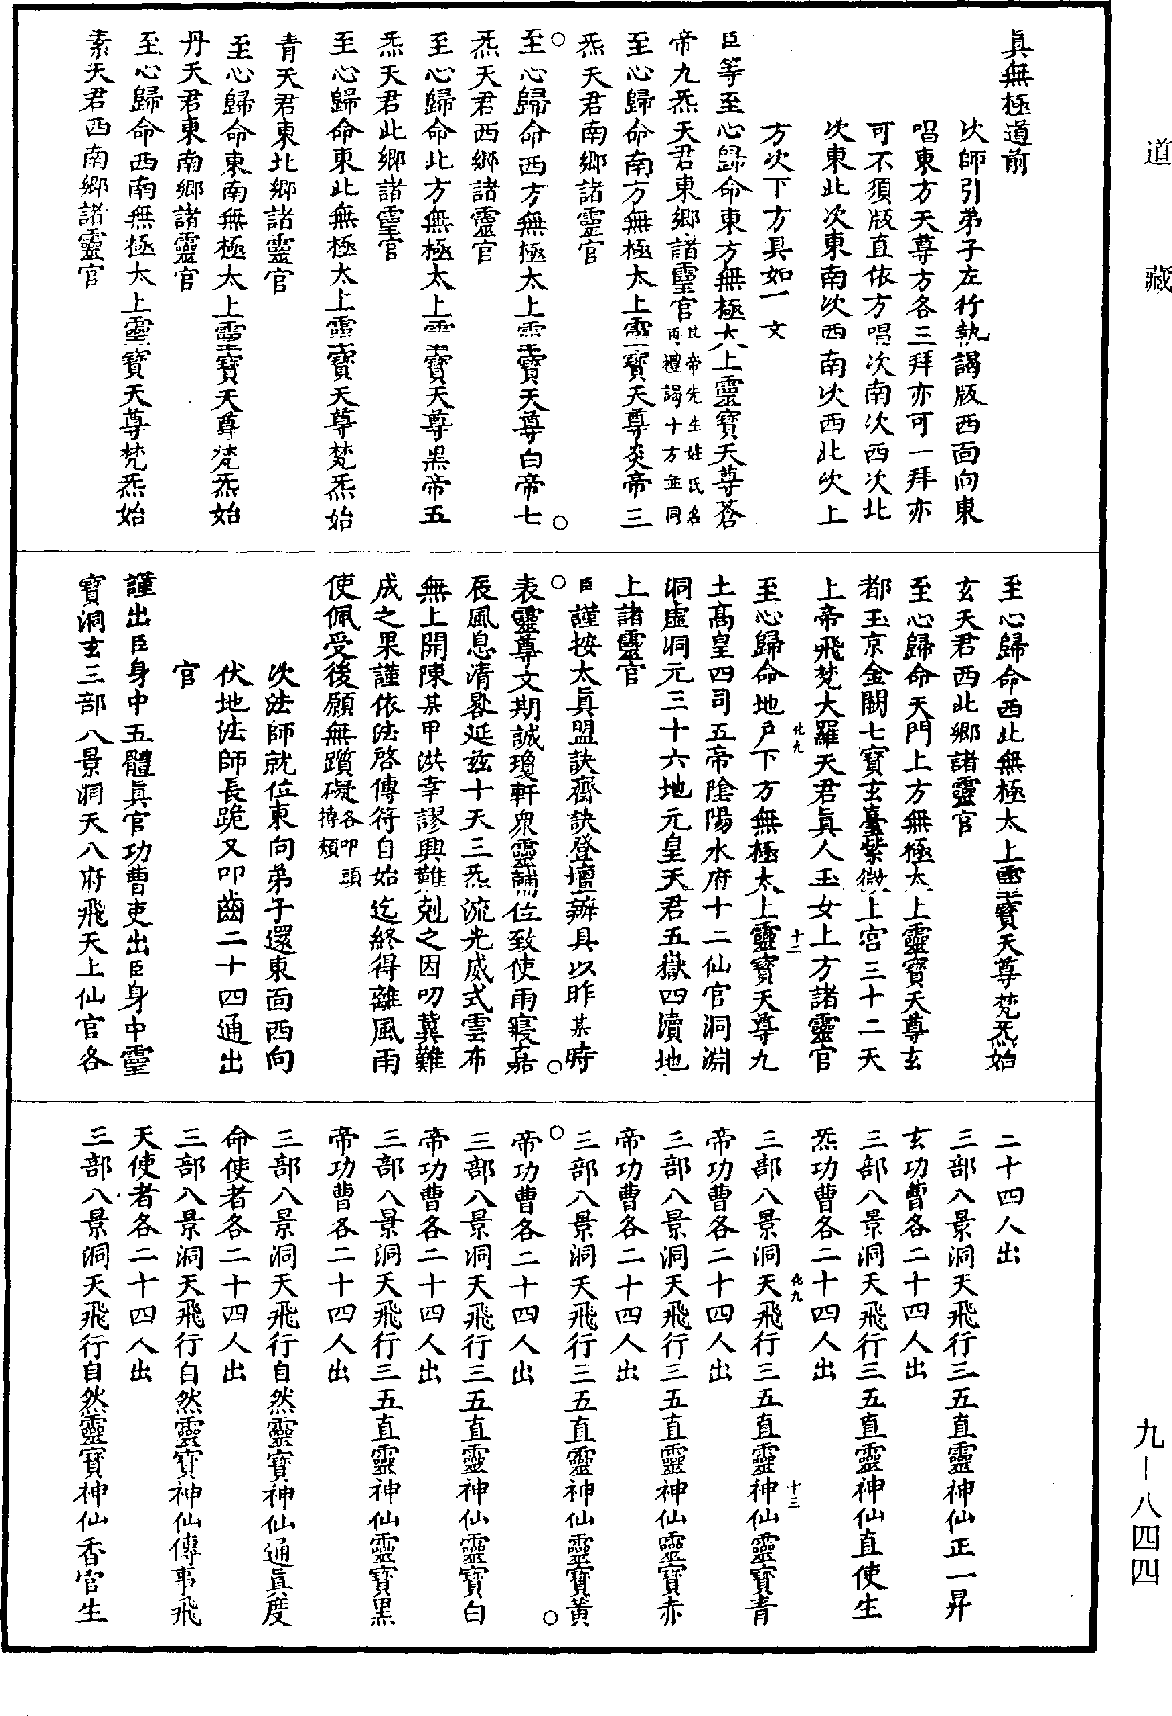 道藏
眞無極道前
次師引弟子左行執謁版西面向東
唱東方天尊方各三拜亦可一拜亦
可不須版直依方唱次南次西次北
次東北次東南次西南次西北次上
方次下方具如一文
臣等至心歸命東方無極太上靈寶天尊蒼
帝九炁天君東鄉諸靈官其帝先生姓氏名再禮謁十方並同
至心歸命南方無極太上靈寶天尊炎帝三
炁天君南鄉諸靈官
至心歸命西方無極太上靈寶天尊白帝七
炁天君西鄉諸靈官
至心歸命北方無極太上靈寶天尊黑帝五
炁天君北鄉諸靈官
至心歸命東北無極太上靈寶天尊梵炁始
青天君東北鄉諸靈官
至心歸命東南無極太上靈寶天尊梵炁始
丹天君東南鄉諸靈官
至心歸命西南無極太上靈寶天尊梵炁始
素天君西南鄉諸靈官
至心歸命西北無極太上靈寶天尊梵炁始
玄天君西北鄉諸靈官
至心歸命天門上方無極太上靈寶天尊玄
都玉京金闕七寶玄臺紫微上宮三十二天
上帝飛梵大羅天君眞人玉女上方諸靈官
化九 十二
至心歸命地戶下方無極太上靈寶天尊九
土高皇四司五帝陰陽水府十二仙官洞淵
洞虛洞元三十六地元皇天君五嶽四瀆地
上諸靈官
臣謹按太眞盟訣齋訣登壇辦具以昨某時
表靈尊文期誠瓊軒衆靈輔位致使雨寢嘉
辰風息清晷延玆十天三炁流光威式雲布
無上開陳某甲洪幸謬興難剋之因叨冀難
成之果謹依法啓傳符自始迄終得離風雨
使佩受後願無躓礙各叩頭搏頰
次法師就位東向弟子還東面西向
伏地法師長跪又叩齒二十四通出
官
謹出臣身中五體眞官功曹吏出臣身中靈
寶洞玄三部八景洞天八府飛天上仙官各
二十四人出
三部八景洞天飛行三五直靈神仙正一昇
玄功曹各二十四人出
三部八景洞天飛行三五直靈神仙直使生
炁功曹各二十四人出
化九 十三
三部八景洞天飛行三五直靈神仙靈寶青
帝功曹各二十四人出
三部八景洞天飛行三五直靈神仙靈寶赤
帝功曹各二十四人出
三部八景洞天飛行三五直靈神仙靈寶黃
帝功曹各二十四人出
三部八景洞天飛行三五直靈神仙靈寶白
帝功曹各二十四人出
三部八景洞天飛行三五直靈神仙靈寶黑
帝功曹各二十四人出
三部八景洞天飛行自然靈寶神仙通眞度
命使者各二十四人出
三部八景洞天飛行自然靈寶神仙傳事飛
天使者各二十四人出
三部八景洞天飛行自然靈寶神仙香官生
九—八四四